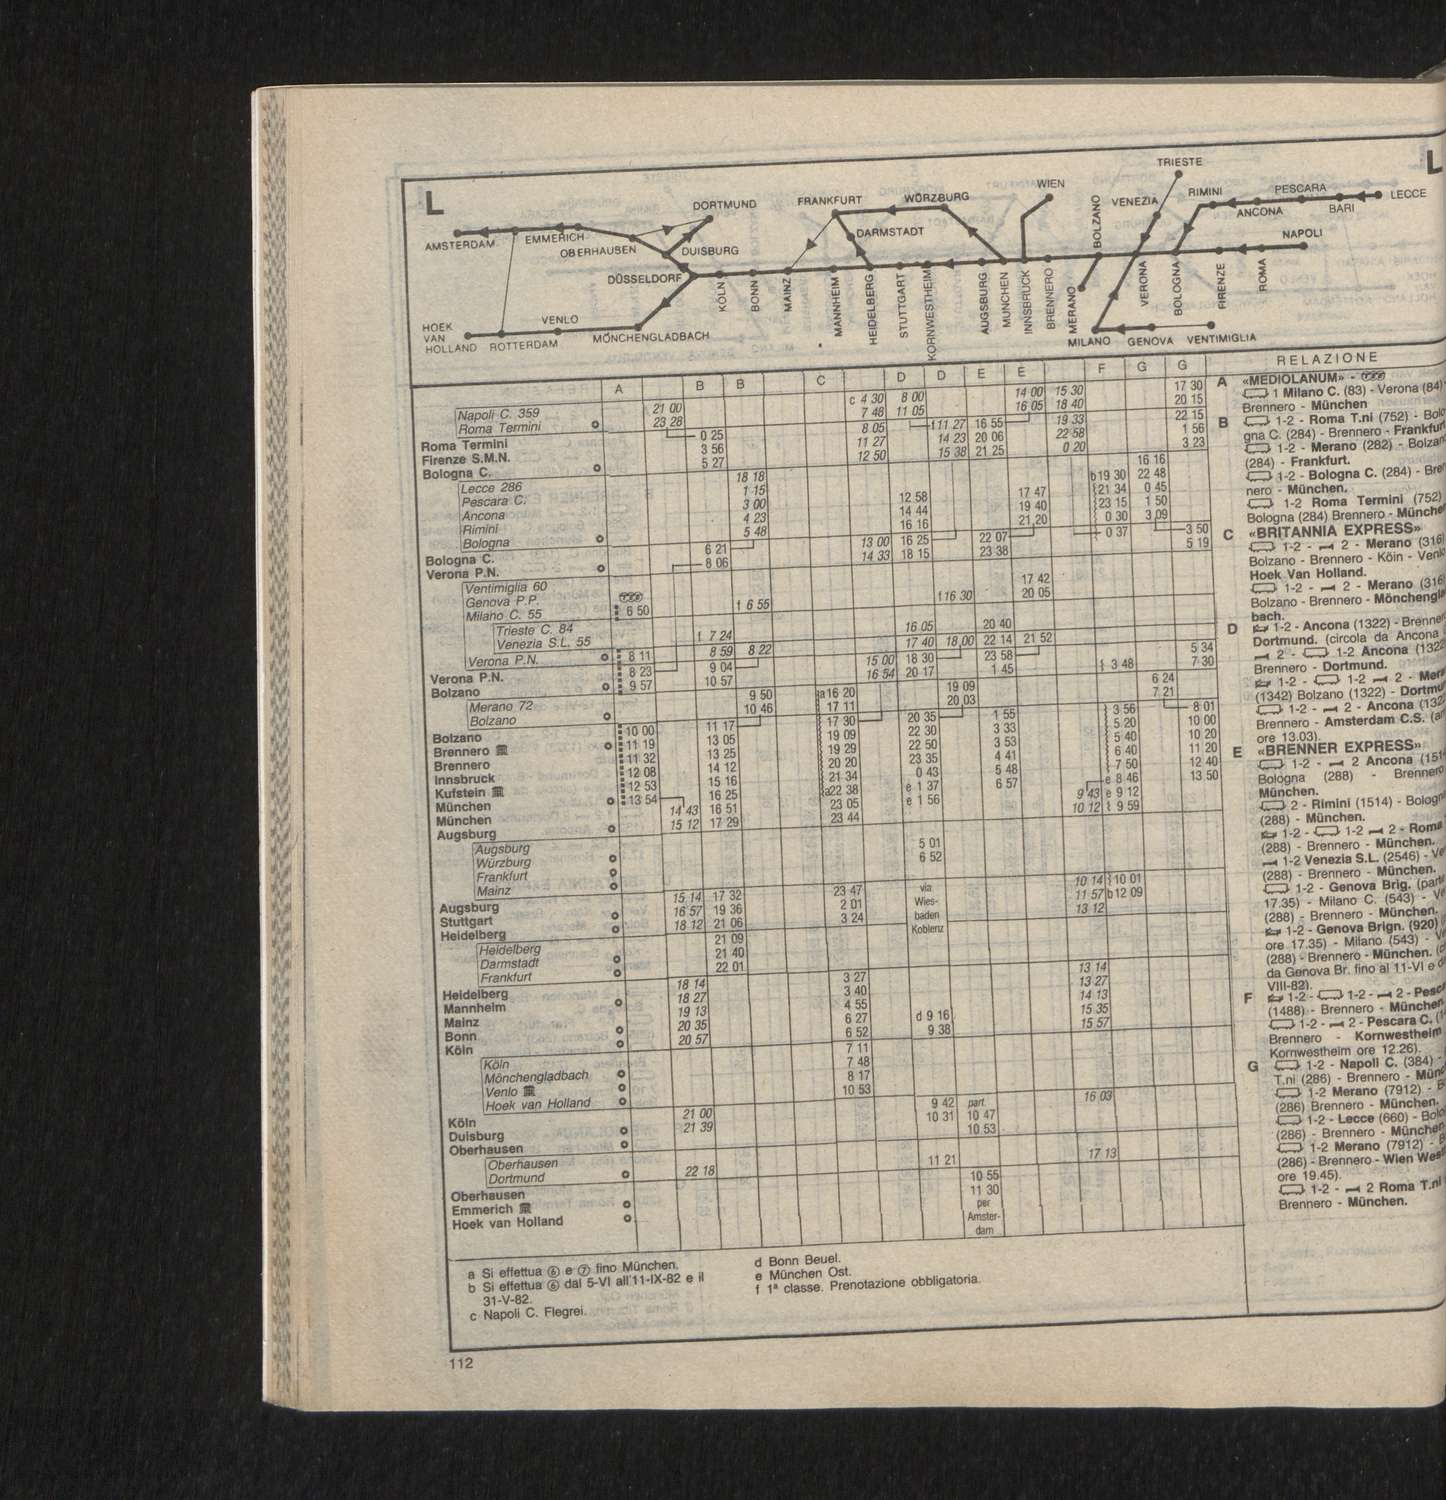 L
L
TRIESTE
WIEN
DORTMUND
FRANKFURT
WÖRZBURG
BOLZANO
VENEZIA
RIMINI
PESCARA
LECCE
ANCONA
BARI
AMSTERDAM
EMMERICH
OBERHAUSEN
DUISBURG
DARMSTADT
NAPOLI
DÜSSELDORF
KÖLN
BONN
MAINZ
MANNHEIM
HEIDELBERG
STUTTGART
KORNWESTHEIM
AUGSBURG
MÜNCHEN
INNSBRUCK
BRENNERO
MERANO
VERONA
BOLOGNA
FIRENZE
ROMA
HOEK
VAN
HOLLAND
ROTTERDAM
VENLO
MÖNCHENGLADBACH
MILANO
GENOVA
VENTIMIGLIA
A B B C D D E E F G G
Napoli C. 359 21 00 c 4 30 8 00 14 00 15 30 17 30
Roma Termini 23 28 7 48 11 05 16 05 18 40 20 15
Roma Termini 0 25 8 05 11 27 16 55 19 33 22 15
Firenze S.M.N. 3 56 11 27 14 23 20 06 22 58 1 56
Bologna C. 5 27 12 50 15 38 21 25 0 20 3 23
Lecce 286 18 18 b19 30 16 16
Pescara C. 1 15 21 34 22 48
Ancona 3 00 12 58 17 47 23 15 0 45
Rimini 4 23 14 44 19 40 0 30 1 50
Bologna 5 48 16 16 21 20 3 09
Bologna C. 6 21 13 00 16 25 22 07 0 37 3 50
Verona P.N. 8 06 14 33 18 15 23 38 5 19
Ventimiglia 60 17 42
Genova P.P. 20 05
Milano C. 55 6 50 f 6 55 16 30
Trieste C. 84 16 05 20 40
Venezia S.L. 55 f 7 24 17 40 18 00 22 14 21 52
Verona P.N. 8 11 8 59 8 22
Verona P.N. 8 23 9 04 15 00 18 30 23 58 5 34
Bolzano 9 57 10 57 16 54 20 17 1 45 3 48 7 30
Merano 72 9 50 a16 20 19 09 6 24
Bolzano 10 46 17 11 20 03 7 21
Bolzano 10 00 11 17 17 30 20 35 1 55 3 56 8 01
Brennero 11 19 13 05 19 09 22 30 3 33 5 20 10 00
Brennero 11 32 13 25 19 29 22 50 3 53 5 40 10 20
Innsbruck 12 08 14 12 20 20 23 35 4 41 6 40 11 20
Kufstein 12 53 15 16 21 34 0 43 5 48 7 50 12 40
München 13 54 16 25 a22 38 e 1 37 6 57 e 8 46 13 50
München 14 43 16 51 23 05 e 1 56 9 43 e 9 12
Augsburg 15 12 17 29 23 44 10 12 9 59
Augsburg
Würzburg 5 01
Frankfurt 6 52
Mainz
Augsburg 15 14 17 32 23 47 via 10 14 10 01
Stuttgart 16 57 19 36 2 01 Wies- 11 57 b12 09
Heidelberg 18 12 21 06 3 24 baden 13 12
Heidelberg 21 09 Koblenz
Darmstadt 21 40
Frankfurt 22 01
Heidelberg 18 14 3 27 13 14
Mannheim 18 27 3 40 13 27
Mainz 19 13 4 55 14 13
Bonn 20 35 6 27 d 9 16 15 35
Köln 20 57 6 52 9 38 15 57
Köln 7 11
Mönchengladbach 7 48
Venlo 8 17
Hoek van Holland 10 53
Köln 21 00 9 42 part. 16 03
Duisburg 21 39 10 31 10 47
Oberhausen 10 53
Oberhausen
Dortmund 22 18 11 21 17 13
Oberhausen 10 55
Emmerich 11 30
Hoek van Holland per
Amster-
dam
a Si effettua ⑥ e ⑦ fino München.
b Si effettua ⑥ dal 5-VI all'11-IX-82 e il
31-V-82.
c Napoli C. Flegrei.
d Bonn Beuel.
e München Ost.
f 1ª classe. Prenotazione obbligatoria.
112
RELAZIONE
A «MEDIOLANUM» -
1 Milano C. (83) - Verona (84)
Brennero - München
B 1-2 - Roma T.ni (752) -
gna C. (284) - Brennero -
1-2 - Merano (282) -
(284) - Frankfurt.
1-2 - Bologna C. (284) -
nero - München.
1-2 Roma Termini (752)
Bologna (284) Brennero -
C «BRITANNIA EXPRESS»
1-2 - 2 - Merano (316)
Bolzano - Brennero - Köin -
Hoek Van Holland.
1-2 - 2 - Merano (316)
Bolzano - Brennero -
bach.
D 1-2 - Ancona (1322) -
Dortmund. (circola da Ancona
2 - 1-2 Ancona
Brennero - Dortmund.
1-2 - 1-2 2 -
(1342) Bolzano (1322) -
1-2 - 2 - Ancona
Brennero - Amsterdam C.S.
ore 13.03).
E «BRENNER EXPRESS»
1-2 - 2 Ancona
Bologna (288) - Brennero
München.
2 - Rimini (1514) -
(288) - München.
1-2 - 1-2 2 -
(288) - Brennero - München.
1-2 Venezia S.L. (2546) -
(288) - Brennero - München.
1-2 - Genova Brig.
17.35) - Milano C. (543) -
(288) - Brennero - München.
1-2 - Genova Brign. (920)
ore 17.35) - Milano (543) -
(288) - Brennero - München.
da Genova Br. fino al 11-VI e
VIII-82).
F 1-2 - 1-2 - 2 -
(1488) - Brennero - München
1-2 - 2 - Pescara C.
Brennero - Kornwestheim
Kornwestheim ore 12.26).
G 1-2 - Napoli C. (384) -
T.ni (286) - Brennero -
1-2 Merano (7912) -
(286) Brennero - München.
1-2 - Lecce (660) -
(286) - Brennero -
1-2 Merano (7912) -
(286) - Brennero - Wien
ore 19.45).
1-2 - 2 Roma T.ni
Brennero - München.